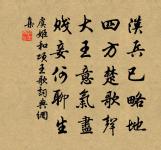 漢兵已略地
四方楚歌聲
大王意氣盡
賤妾何聊生
虞姬和項王歌詞典網
集